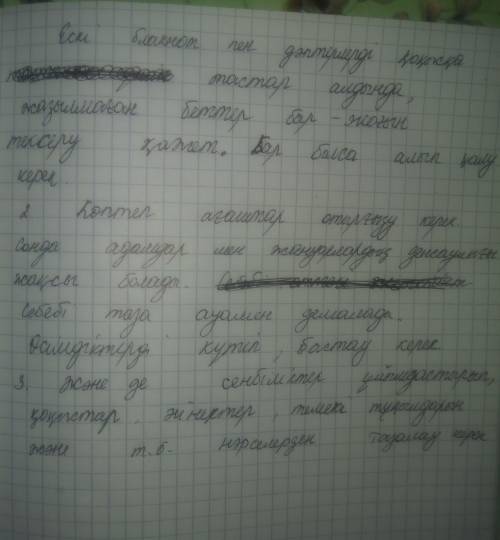 Ескі блакнот пен дәптерлерді қоқысқа
тастар алдында,
жазылмаған беттер бар - жоғын
тексеру қажет. Бар болса алып қалу
керек.
2 Көптеп ағаштар отырғызу керек.
Сонда адамдар мен жануарлардың денсаулығы
жақсы болады.
Себебі таза ауамен демалада.
Өсімдіктерді күтіп, бастау керек.
3. Және де сенбіліктер ұйымдастырып,
қоқыстар, әйнектер, темекі тұқылдарын
және т.б. нәрселерден тазалау керек